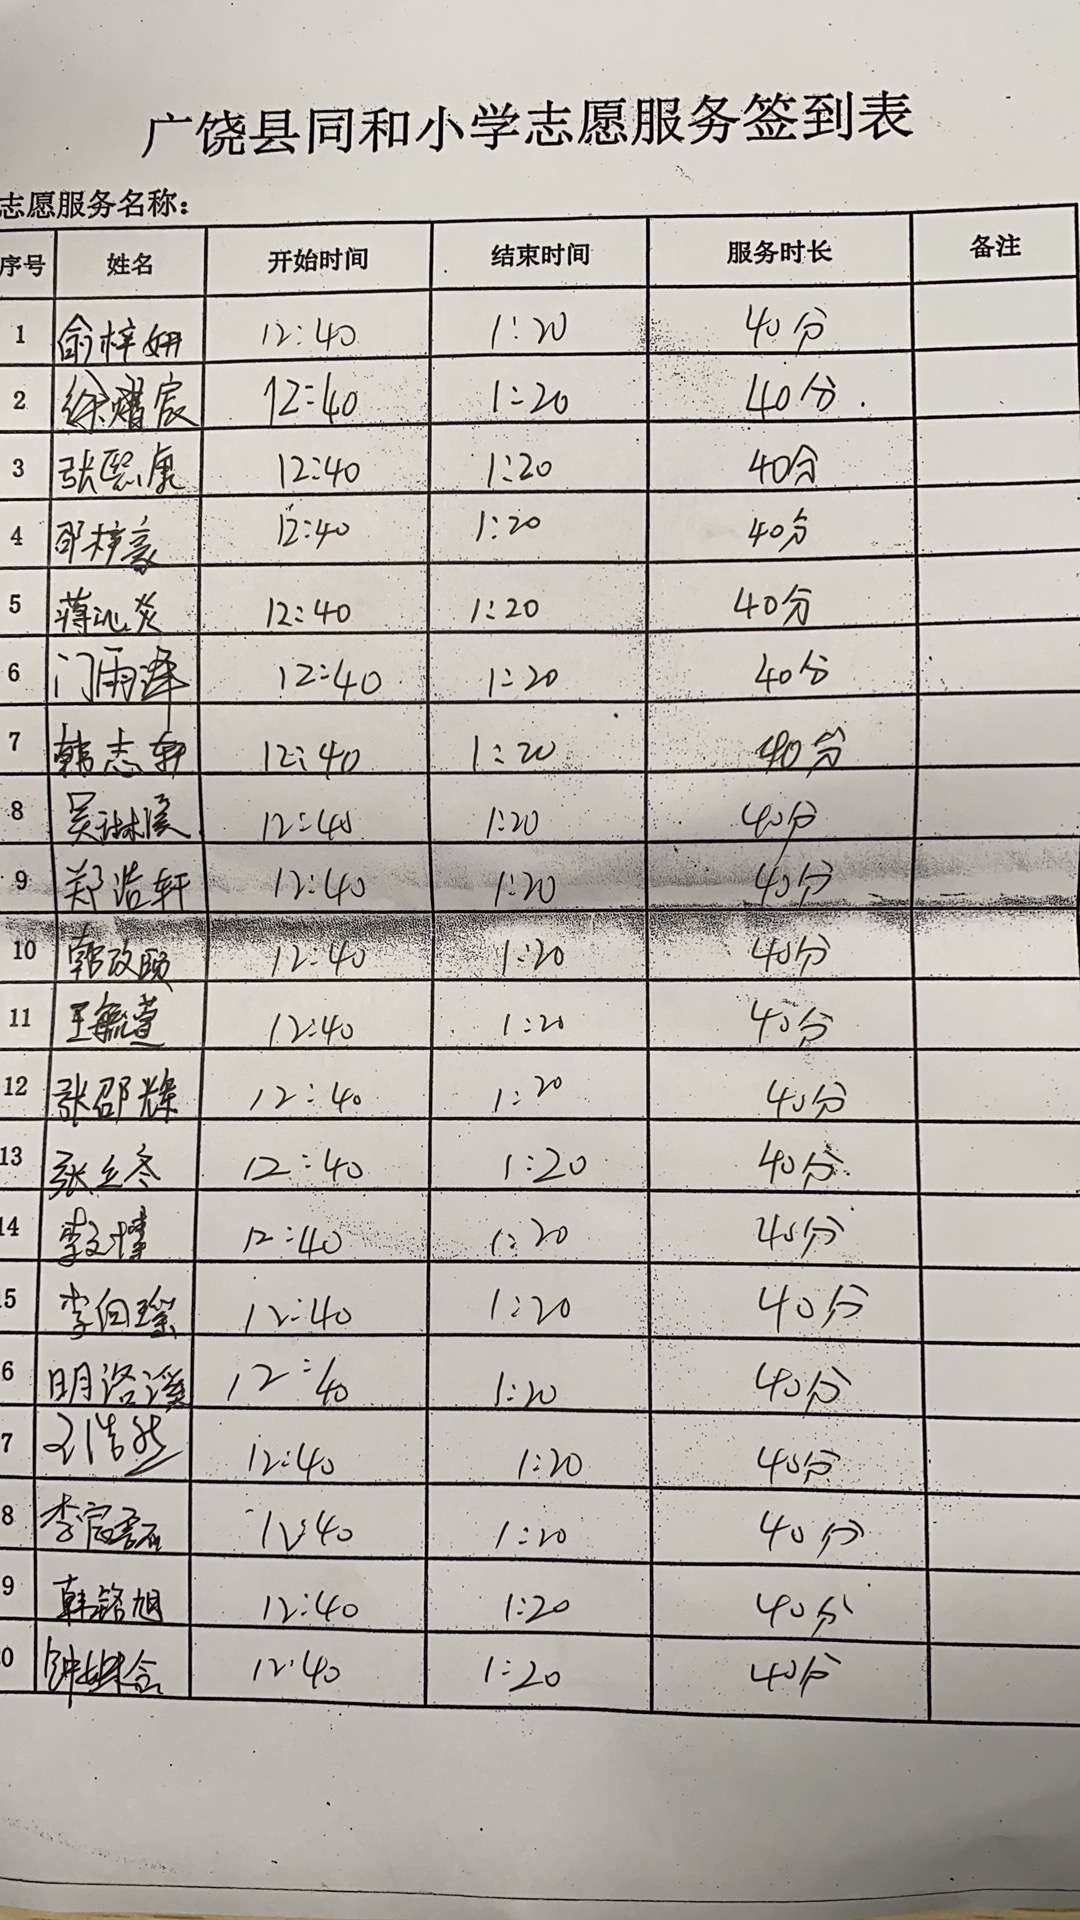 广饶县同和小学志愿服务签到表
志愿服务名称：
序号 姓名 开始时间 结束时间 服务时长 备注
1 俞梓妍 12:40 1:20 40分
2 徐熠宸 12:40 1:20 40分
3 张熙康 12:40 1:20 40分
4 邵梓豪 12:40 1:20 40分
5 蒋沁炎 12:40 1:20 40分
6 门雨泽 12:40 1:20 40分
7 韩志轩 12:40 1:20 40分
8 吴琳溪 12:40 1:20 40分
9 郑浩轩 12:40 1:20 40分
10 韩政颐 12:40 1:20 40分
11 王毓萱 12:40 1:20 40分
12 张邵烁 12:40 1:20 40分
13 张立冬 12:40 1:20 40分
14 李文博 12:40 1:20 40分
5 李向瑶 12:40 1:20 40分
6 明洛溪 12:40 1:20 40分
7 刘浩然 12:40 1:20 40分
8 李宸磊 12:40 1:20 40分
9 韩铭旭 12:40 1:20 40分
0 12:40 1:20 40分